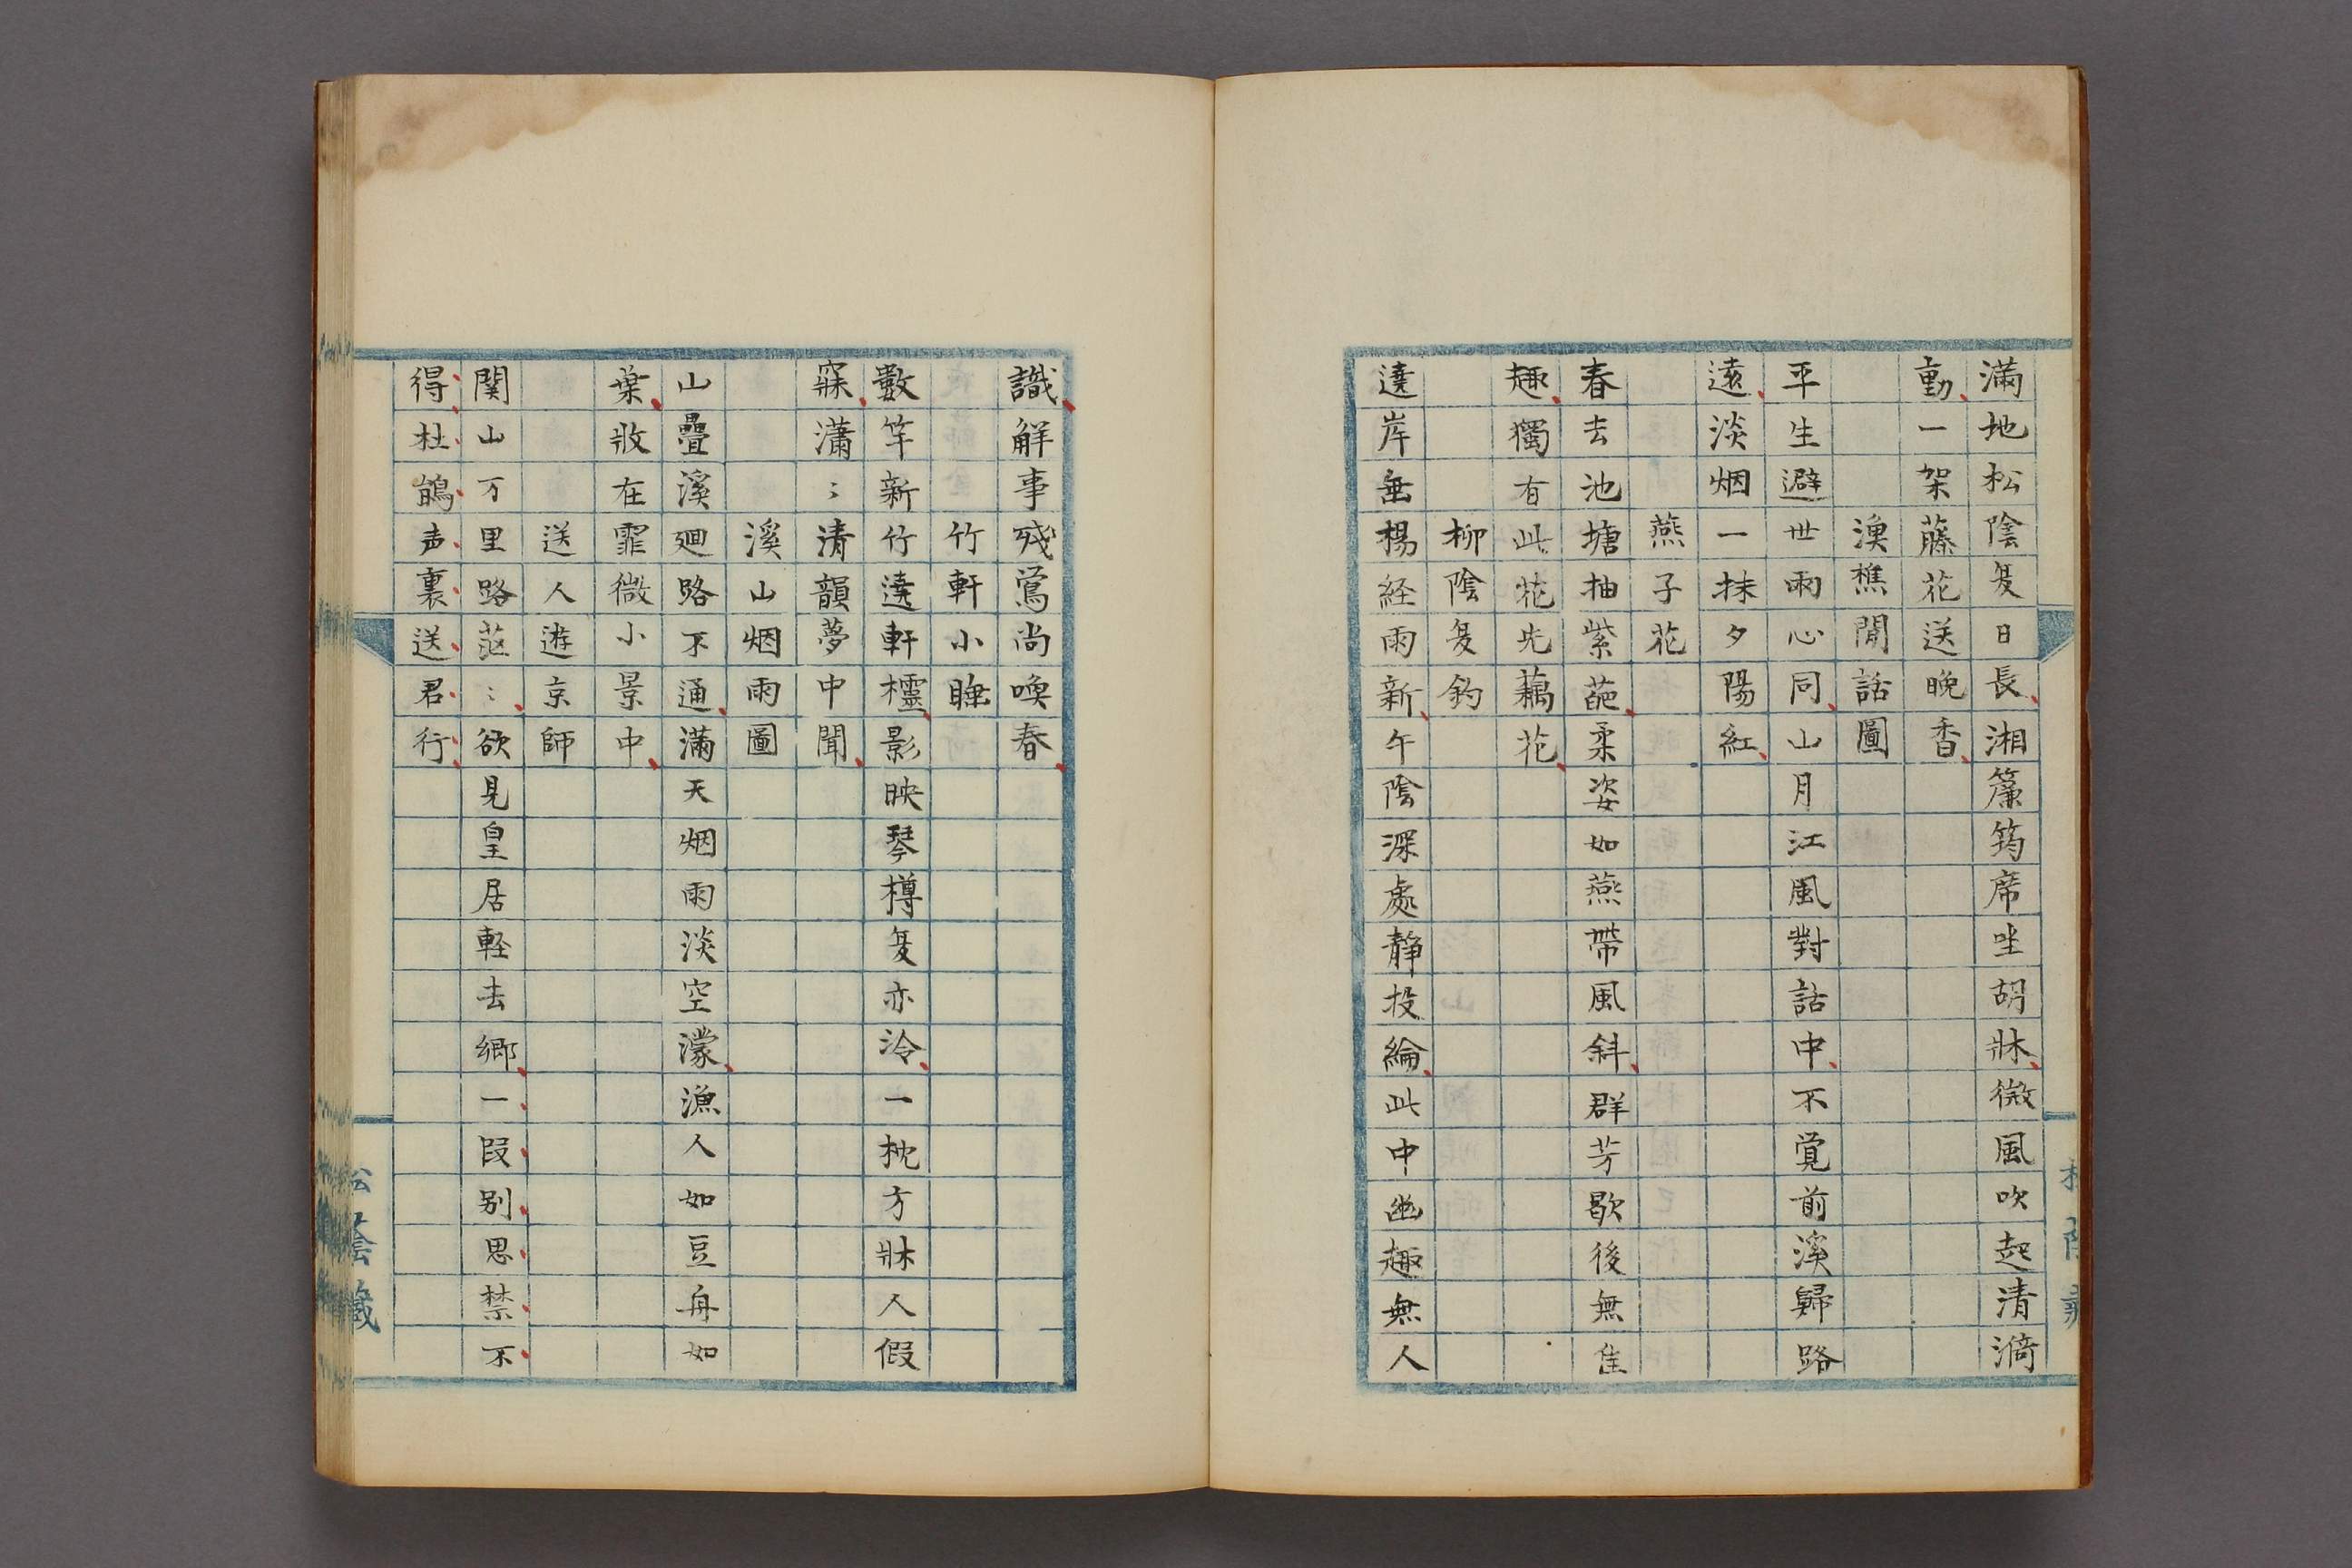 満地松陰夏日長湘簾筠席坐胡牀微風吹起清漪
動一架藤花送晩香
漁樵閒話圖
平生避世兩心同山月江風對話中不覚前溪歸路
遠淡烟一抹夕陽紅
燕子花
春去池塘抽紫葩柔姿如燕帶風斜群芳歇後無隹
趣獨有此花先藕花
柳陰夏釣
遶岸垂楊経雨新午陰深處静投綸此中幽趣無人
識解事残鶯尚喚春
竹軒小睡
數竿新竹遶軒欞影映琴樽夏亦冷一枕方牀人假
寐瀟〻清韻夢中聞
溪山烟雨圖
山疊溪廻路不通滿天烟雨淡空濛漁人如豆舟如
葉收在霏微小景中
送人遊京師
関山万里路茫〻欲見皇居軽去郷一段別思禁不
得杜鵑声裏送君行
松陰藏